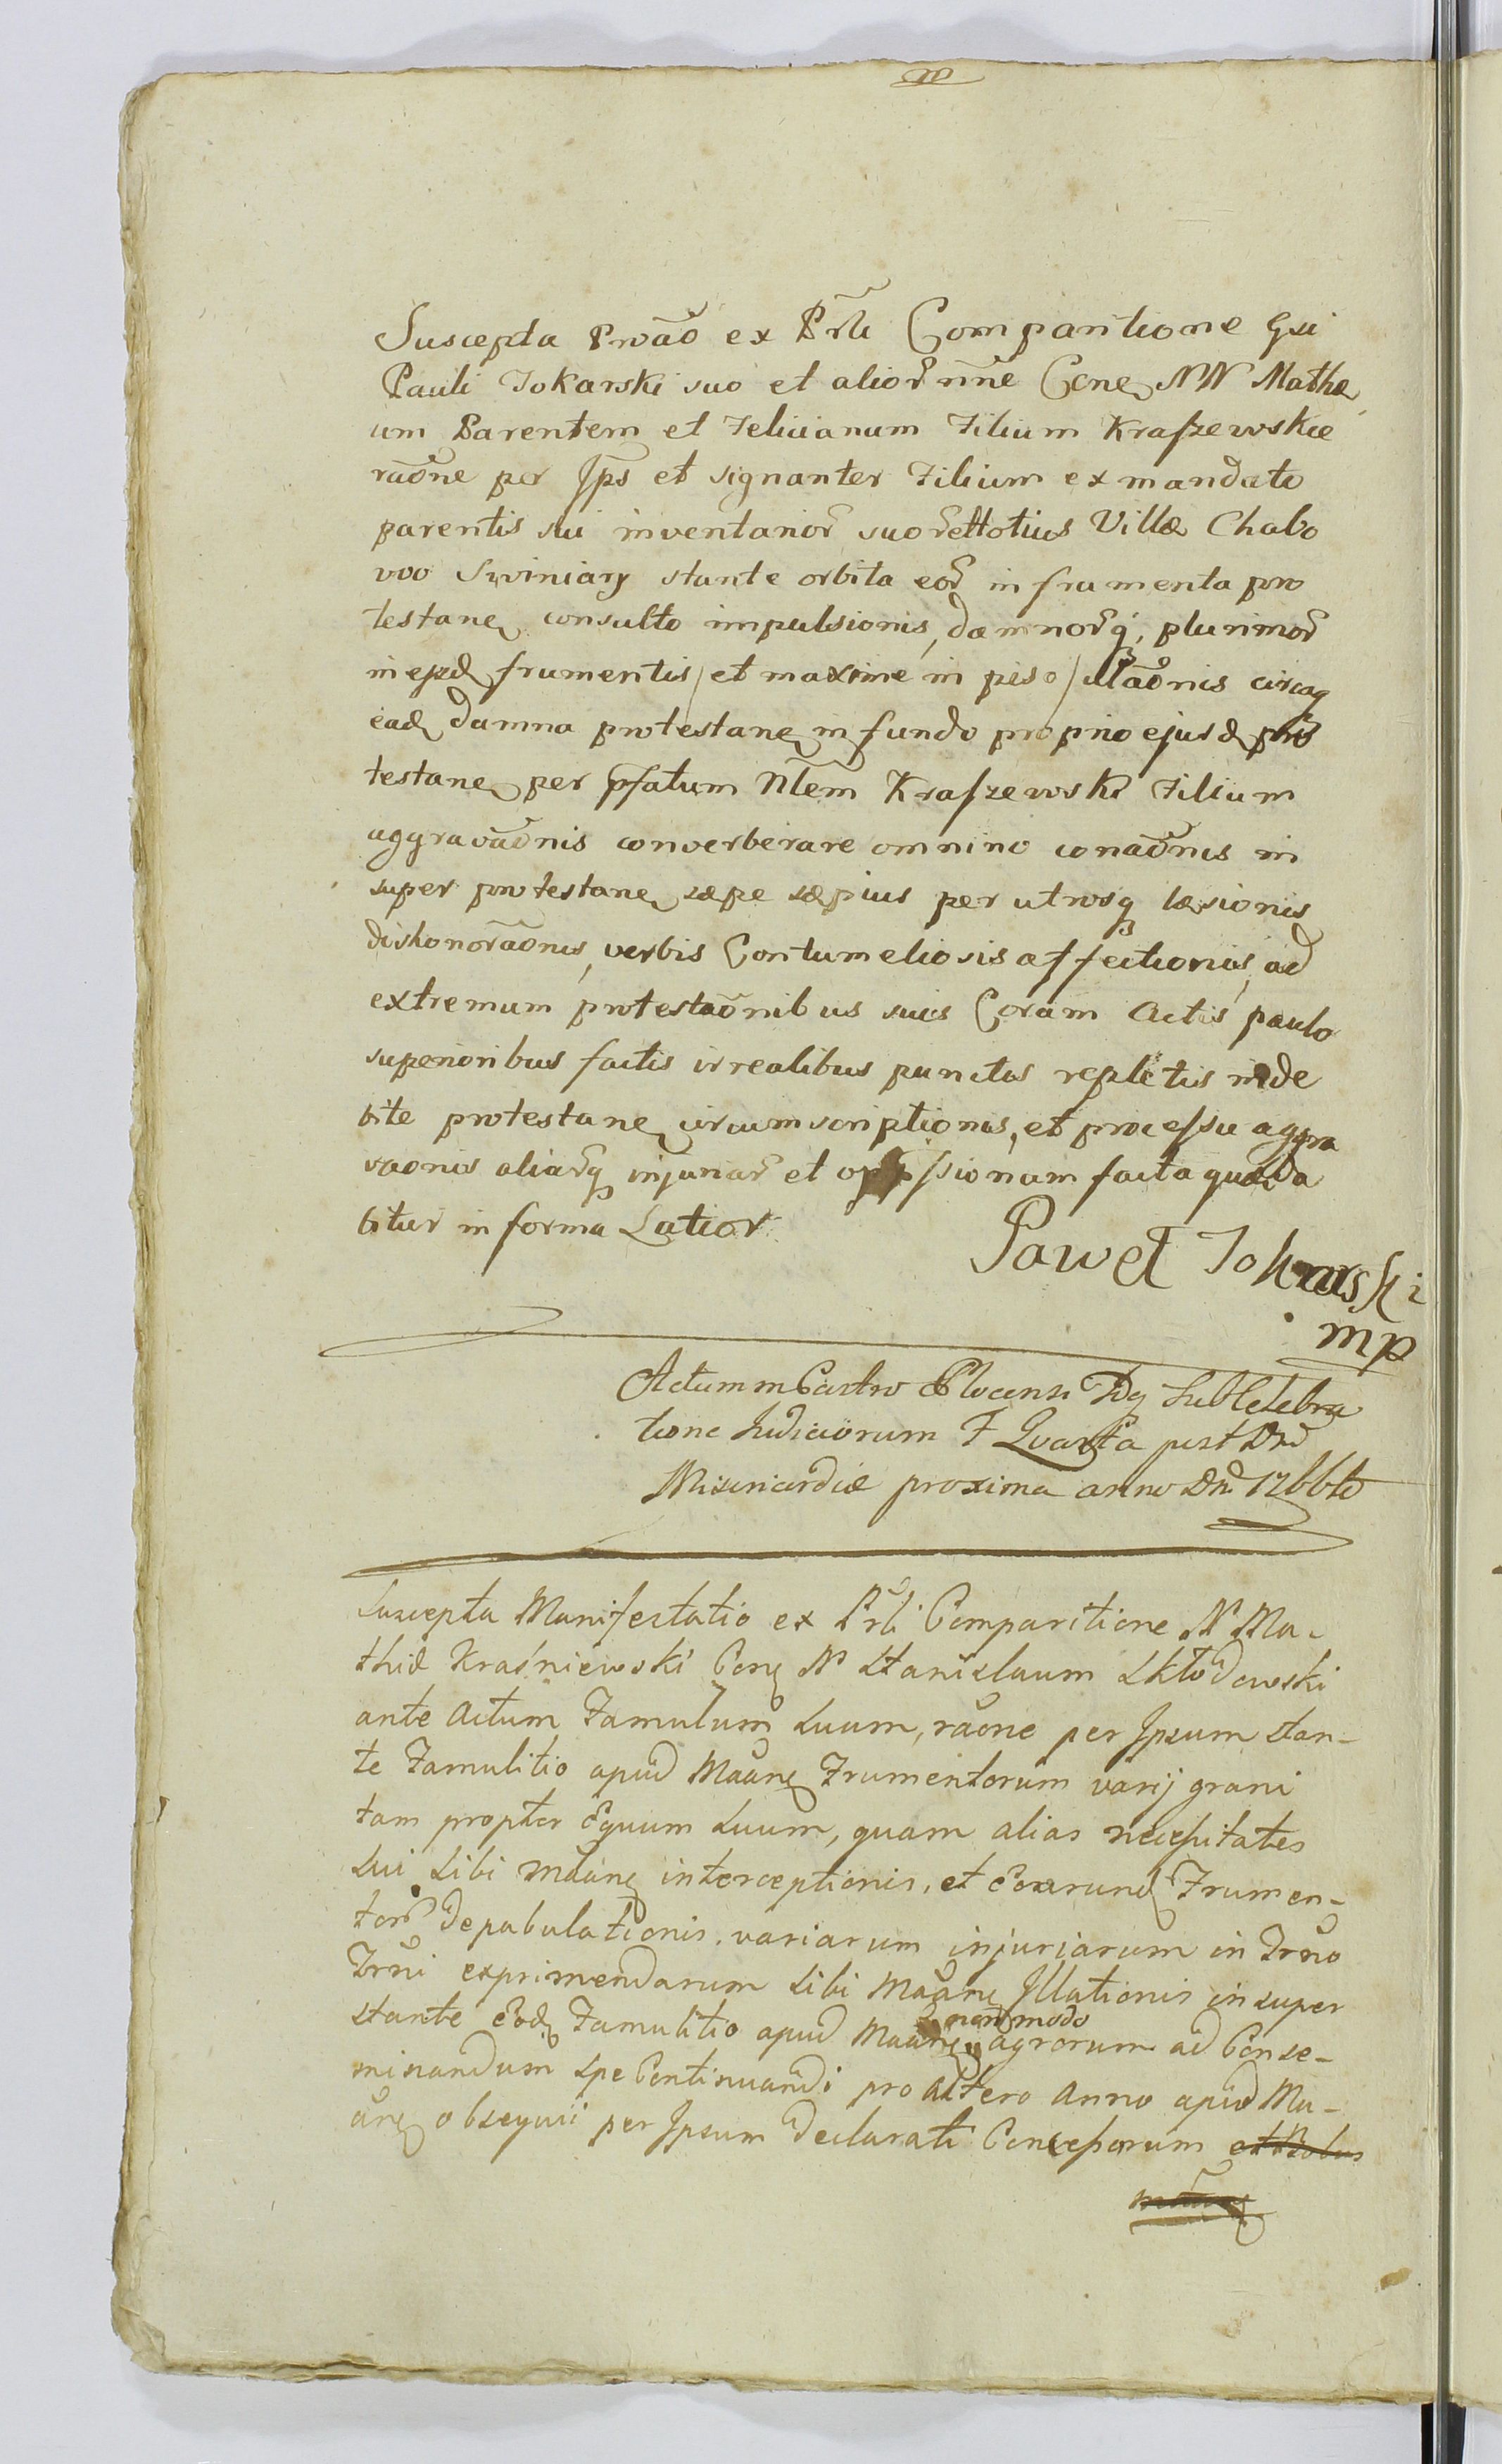 Suscepta Prõtaõ ex Prsli Comparitione Gsi
Pauli Tokarski suo et alior̃ nñe Cone NN Mathæ
um Parentem et Felicianum Filium Kraszewskie
raõne per Jps̃ et signanter Filium ex mandato
parentis sui inventarior̃ suor̃ et totius Villæ Chabo
wo Swiniary stante orbita eor̃ in frumenta pro
testane consulto impulsionis, damnor̃q, plurimor̃
in ejsd frumentis / et maxime in piso / illaõnis circaq
ead damna protestane in fundo proprio ejusd pro
testane per pfatum Nlem Kraszewski Filium
aggravaõnis converberare omnino conaõnis in
super protestane sæpe sæpius per utrosq læsionis
dishonoraõnis, verbis Contumeliosis affectionis, ad
extremum protestaõnibus suis Coram Actis paulo
superioribus factis irrealibus punctis repletis inde
bite protestane circumscriptionis, et processu aggra
vaonis aliar̃q injuriar̃ et oppssionum facta quæ da
bitur in forma Latior
Paweł Tokarski
mp
Actum in Castro Plocensi Fdq sub Celebra
tione Judiciorum F Quarta post Dnc
Misericordiæ proxima anno Dni 1766to
Suscepta Manifestatio ex Prsli Comparitione N Ma-
thiæ Kraśniewski Cone N Stanislaum Skłodowski
ante Actum Famulum Suum, raone per Jpsum stan-
te Famulitio apud Maãne Frumentorum varij grani
tam propter Equum Suum, quam alias necessitates
Sui Sibi Maãne interceptionis, et Eorund Frumen-
tor̃ depabulationis, variarum injuriarum in Trño
Trñi exprimendarum Sibi Maãne Jllationis insuper
stante Eod Famulitio apud Maãne non modo agrorum ad Conse-
minandum Spe Continuandi pro altero Anno apud Ma-
ãne obsequii per Jpsum declarati Concessorum et Bobus
mãne